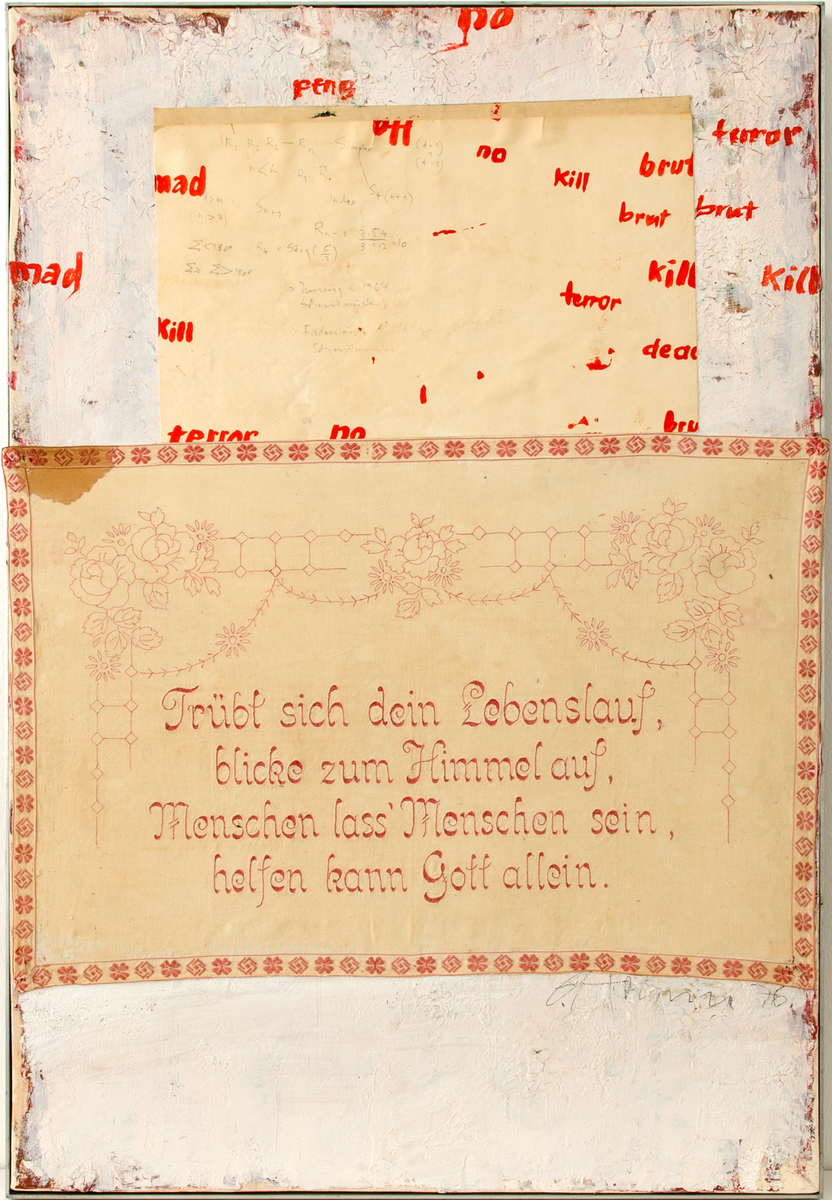 no
peng
off
terror
no
mad
kill
brut
brut
brut
mad
kill
kill
terror
kill
dead
terror
no
bru
Trübt sich dein Lebenslauf,
blicke zum Himmel auf,
Menschen lass' Menschen sein,
helfen kann Gott allein.
76.